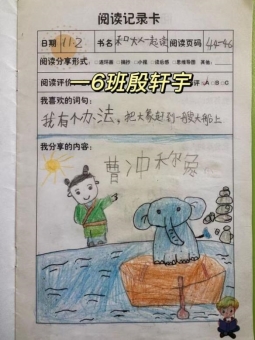 阅读记录卡
日期 11.2 书名 和大人一起读 阅读页码 44-46
阅读分享形式: □连环画 □摘抄 □小报 □读后感 □思维导图 其他:
阅读评价
一6班殷轩宇
评 □A □B □C
我喜欢的词句:
我有个办法,把大象赶到一艘大船上
我分享的内容:
曹冲称象